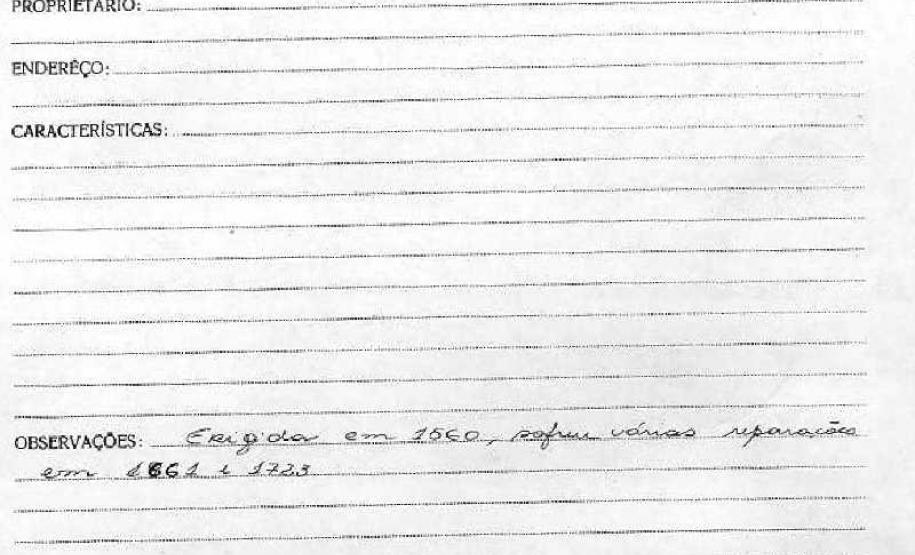 PROPRIETÁRIO:
ENDERÊÇO:
CARACTERÍSTICAS:
OBSERVAÇÕES: Erigida em 1560, sofreu várias reparações
em 1661 e 1723